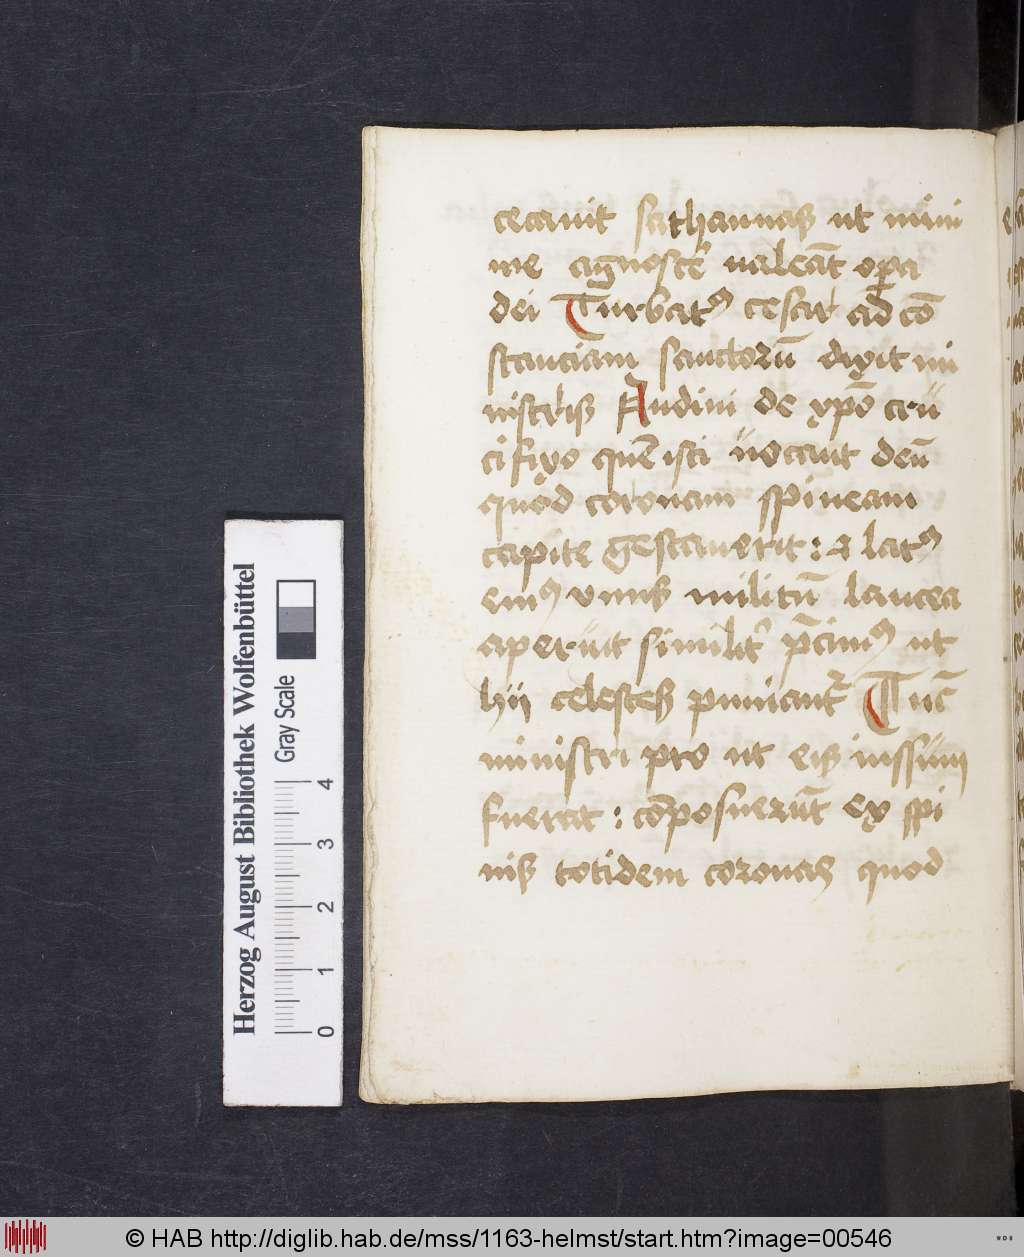 cecauit sathannas ut mini
me agnoscer̉ ualeāt oꝑa
dei Turbatꝰ cesar ad cō
stanciam sanctorū dixit mi
nistris Audiui de xp̄o cru
cifixo quē isti uocant deū
quod coronam spineam
capite gestauerit: ⁊ latꝰ
eiuꝰ vnus militū lancea
aperuit similit̉ p̄cimꝰ ut
hii celestes puniant᷑ Tūc
ministri pro ut eis iussum
fuerat : cōposuerūt ex spi
nis totidem coronas quod
Herzog August Bibliothek Wolfenbüttel
Gray Scale
0 1 2 3 4
© HAB http://diglib.hab.de/mss/1163-helmst/start.htm?image=00546